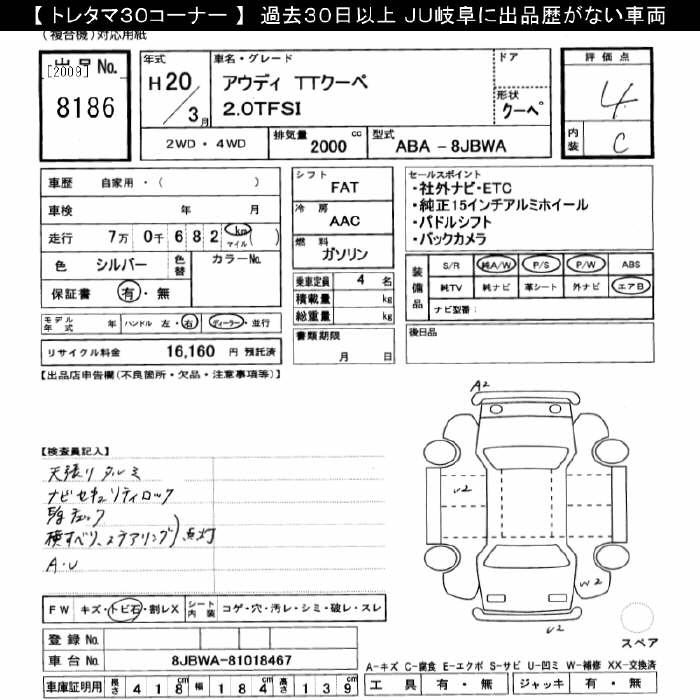 【 トレタマ30コーナー 】 過去30日以上 JU岐阜に出品歴がない車両
(複合機)対応用紙
出品No.
[2009]
8186
年式
H20/3月
車名・グレード
アウディ TTクーペ
2.0TFSI
ドア
形状
クーペ
2WD・4WD
排気量 2000 cc
型式 ABA - 8JBWA
評価点
4
内装 C
車歴 自家用・( )
車検 年 月
走行 7万 0千 6 8 2 km マイル ( )
色 シルバー 色替 カラーNo.
保証書 有・無
モデル年式 年 ハンドル 左・右 ディーラー・並行
リサイクル料金 16,160 円 預託済
シフト
FAT
冷房
AAC
燃料
ガソリン
乗車定員 4 名
積載量 kg
総重量 kg
書類期限
月 日
セールスポイント
・社外ナビ・ETC
・純正15インチアルミホイール
・パドルシフト
・バックカメラ
装備品
S/R 純A/W P/S P/W ABS
純TV 純ナビ 革シート 外ナビ エアB
ナビ型番:
後日品
【出品店申告欄(不良箇所・欠品・注意事項等)】
【検査員記入】
天張りタルミ
ナビセキュリティロック
横すべり、ステアリング)点灯
A・U
A2
U2
W2
U2
スペア
FW キズ・トビ石・割レX シート内装 コゲ・穴・汚レ・シミ・破レ・スレ
登録No.
車台No. 8JBWA-81018467
車庫証明用 長さ 4 1 8 cm 幅 1 8 4 cm 高さ 1 3 9 cm
A-キズ C-腐食 E-エクボ S-サビ U-凹ミ W-補修 XX-交換済
工具 有・無 ジャッキ 有・無